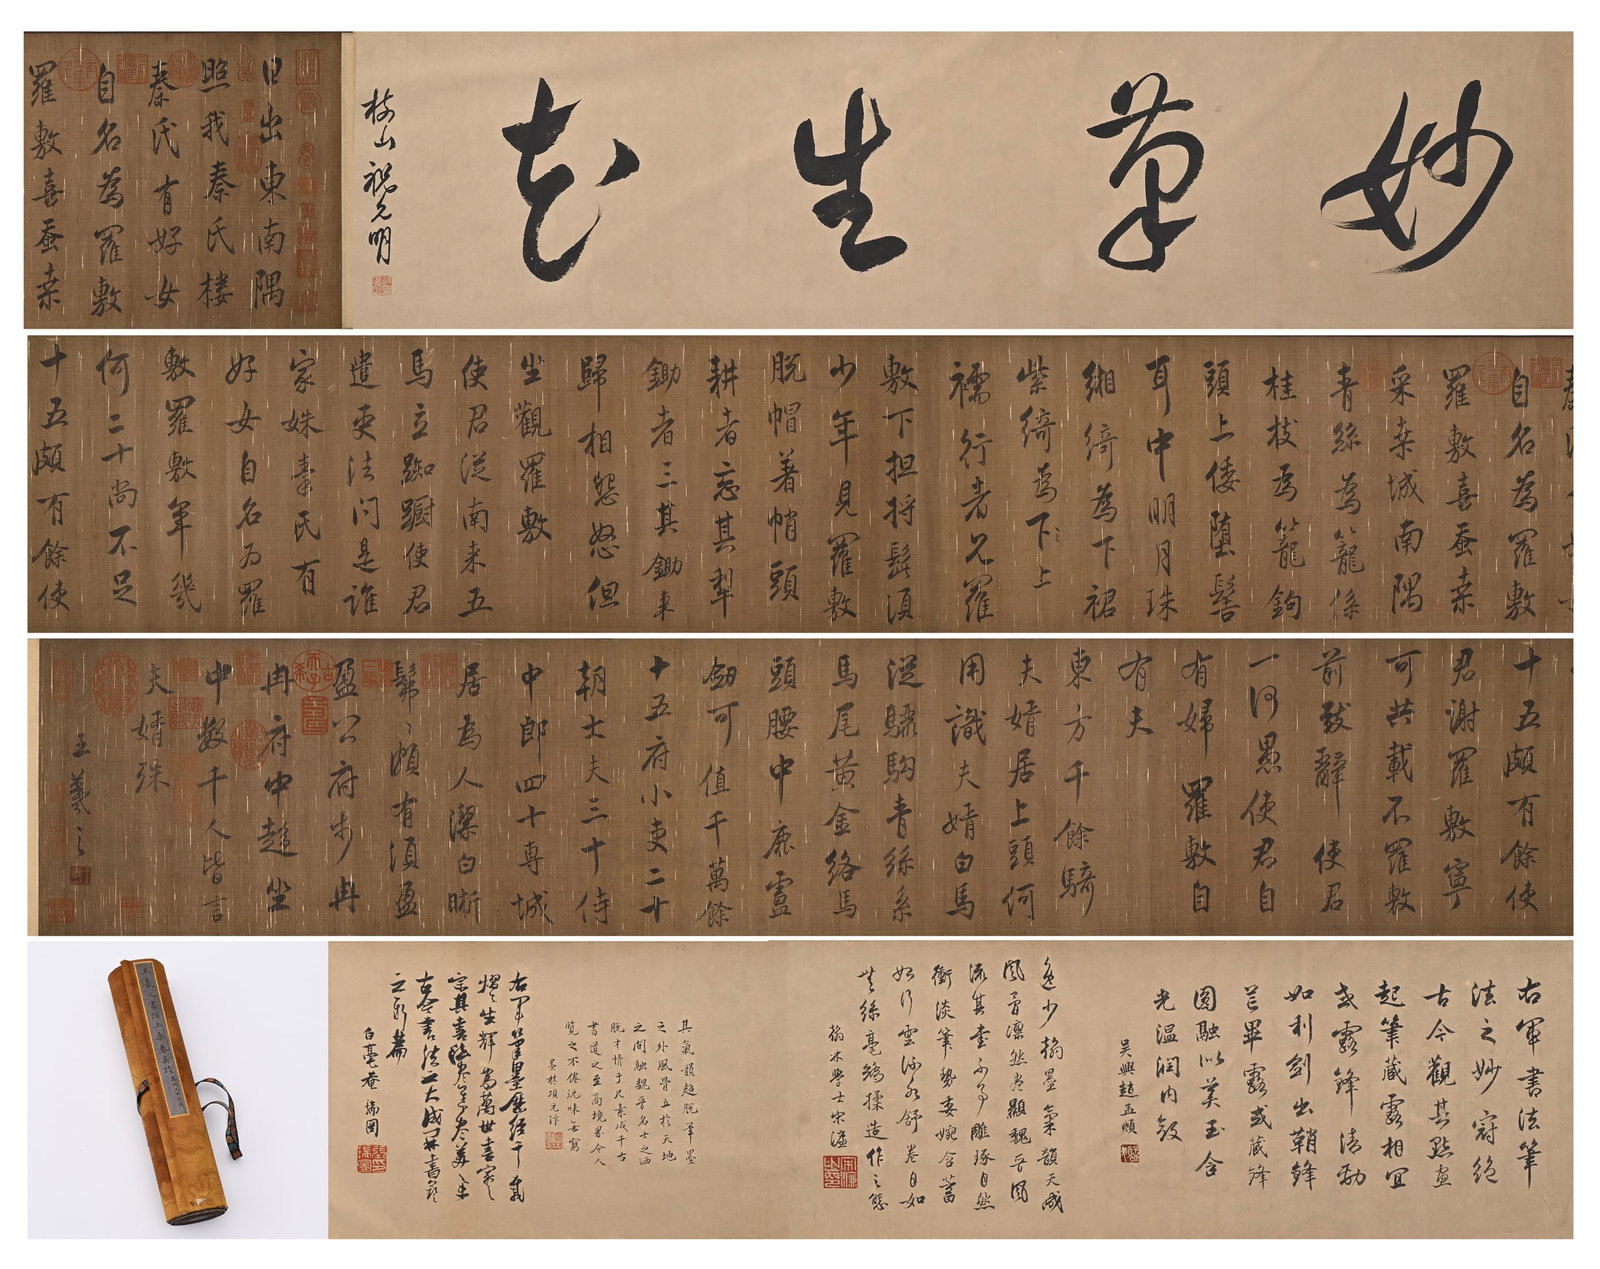 妙筆生花
枝山祝允明
日出東南隅
照我秦氏樓
秦氏有好女
自名為羅敷
羅敷喜蚕桒
自名為羅敷
羅敷喜蚕桒
采桒城南隅
青絲為籠係
桂枝為籠鉤
頭上倭墮髻
耳中明月珠
緗綺為下裙
紫綺為下上
襦行者見羅
敷下担捋髭須
少年見羅敷
脱帽著帩頭
耕者忘其犁
鋤者忘其鋤来
歸相怨怒但
坐觀羅敷
使君從南来五
馬立踟躕使君
遣吏法問是誰
家姝秦氏有
好女自名為羅
敷羅敷年幾
何二十尚不足
十五頗有餘使
十五頗有餘使
君謝羅敷寧
可共載不羅敷
前致辭使君
一何愚使君自
有婦羅敷自
有夫
東方千餘騎
夫婿居上頭何
用識夫婿白馬
從驪駒青絲系
馬尾黃金絡馬
頭腰中鹿盧
劒可值千萬餘
十五府小吏二十
朝大夫三十侍
中郎四十專城
居為人潔白晰
鬑〻頗有須盈
盈公府步冉
冉府中趨坐
中數千人皆言
夫婿殊
王羲之
右軍書法筆
法之妙冠絕
古今觀其點画
起筆藏露相宜
或露鋒清勁
如利劍出鞘鋒
芒畢露或藏鋒
圓融似美玉含
光温潤内斂
吳興趙孟頫
逸少翰墨氣韻天成
風骨凛然盡顯魏晉風
流其書不事雕琢自然
衝淡筆勢委婉含蓄
如行雲流水舒卷自如
無絲毫矯揉造作之態
翰林學士宋濂
其氣韻超脱筆墨
之外風骨立於天地
之間融魏晉名士之洒
脱才情于尺素成千古
書道之至高境界令人
覽之不倦玩味無窮
墨林項元汴
右軍筆墨歷經千載
熠熠生輝為萬世書家之
古今書法之大成
白亳菴瑞圖